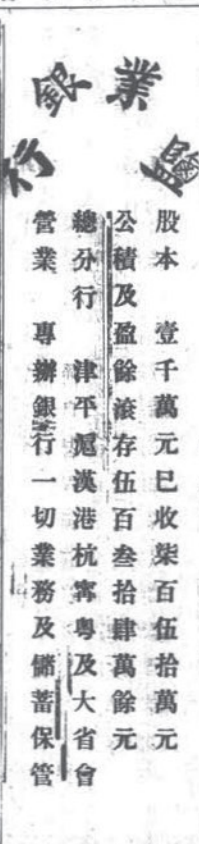 鹽業銀行
股本　壹千萬元已收柒百伍拾萬元
公積及盈餘滾存伍百叁拾肆萬餘元
總分行　津平滬漢港杭甯粵及大省會
營業　專辦銀行一切業務及儲蓄保管